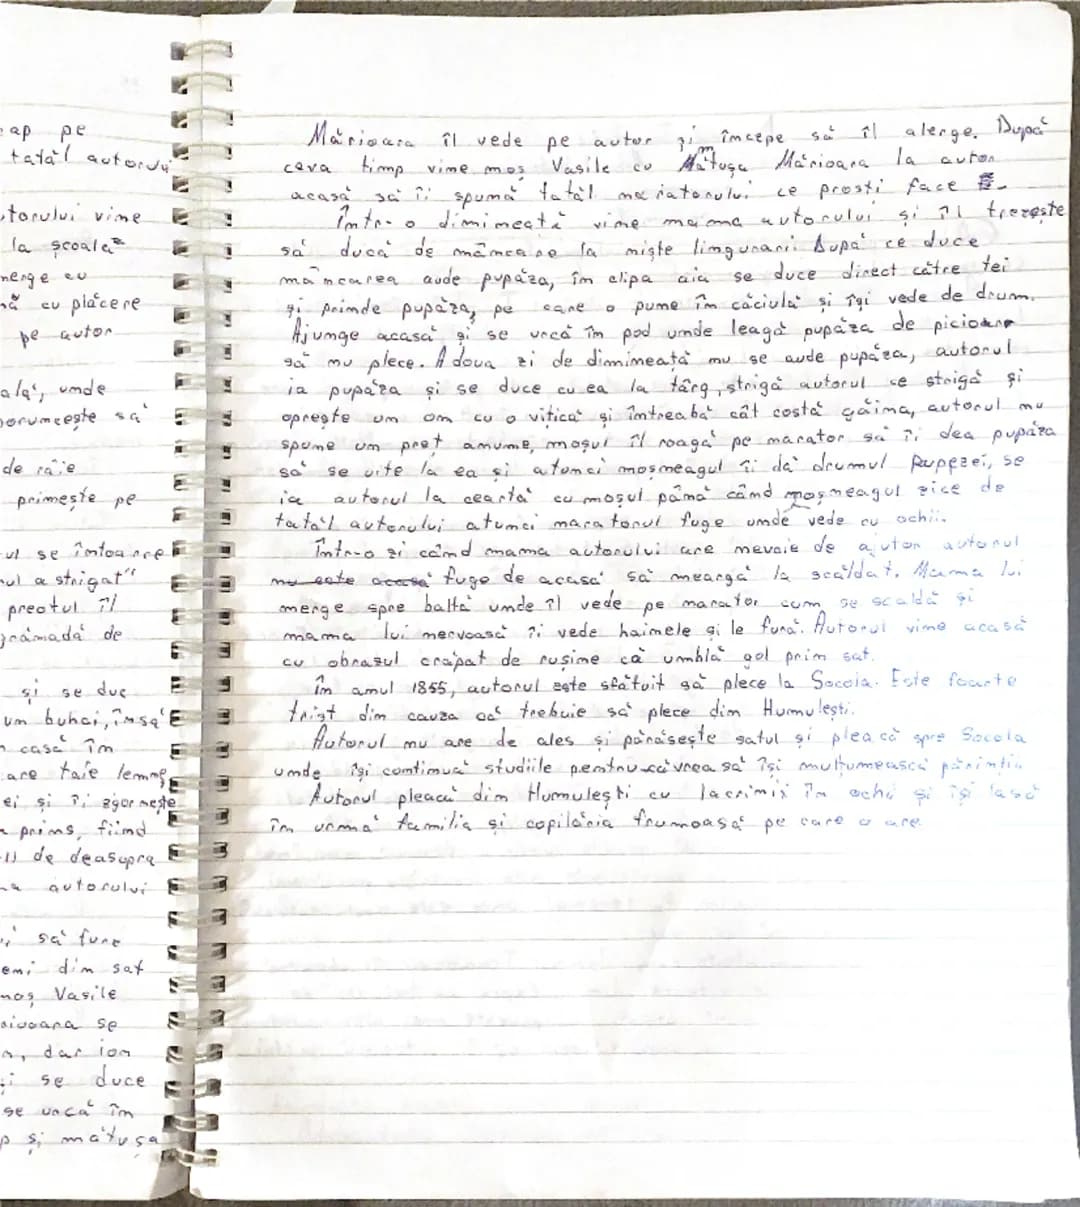 ap pe
tatăl autorului
torului vine
la școală
merge cu
nă cu plăcere
pe autor
ală, unde
poruncește să
de râie
primește pe
ul se întoarce
nul a strigat"
preotul îl
grămadă de
și se duc
un buhai, însă
casă în
are taie lemne
ei și îi zgornește
prins, fiind
de deasupra
autorului
să fure
emi din sat
moș Vasile
ioara se
, dar ion
și se duce
se urcă în
p și mătușa
Mărioara îl vede pe autor și începe să îl alerge. După
ceva timp vine moș Vasile cu Mătușa Mărioara la autor
acasă să îi spună tatăl naratorului ce prosti face
Într-o dimineată vine mama autorului și îl trezește
să ducă de mâncare la niște lingurari După ce duce
mâncarea aude pupăza, în clipa aia se duce direct către tei
și prinde pupăza, pe care o pune în căciulă și își vede de drum.
Ajunge acasă și se urcă în pod unde leagă pupăza de picioare
să nu plece. A doua zi de dimineață nu se aude pupăza, autorul
ia pupăza și se duce cu ea la târg, strigă autorul ce strigă și
oprește un om cu o vițică și întreabă cât costă găina, autorul nu
spune un preț anume, moșul îl roagă pe narator să îi dea pupăza
să se uite la ea și atunci moșneagul îi dă drumul Pupezei, se
ia autorul la ceartă cu moșul până când moșneagul zice de
tatăl autorului atunci naratorul fuge unde vede cu ochii.
Într-o zi când mama autorului are nevoie de ajutor autorul
nu este acasă fuge de acasă să meargă la scăldat. Mama lui
merge spre baltă unde îl vede pe narator cum se scaldă și
mama lui nervoasă îi vede hainele și le fură. Autorul vine acasă
cu obrazul crăpat de rușine că umblă gol prin sat.
În anul 1855, autorul este sfătuit să plece la Socola. Este foarte
trist din cauza că trebuie să plece din Humulești.
Autorul nu are de ales și părăsește satul și pleacă spre Socola
unde își continuă studiile pentru că vrea să își mulțumească părinții.
Autorul pleacă din Humulești cu lacrimi în ochi și își lasă
în urmă familia și copilăria frumoasă pe care o are